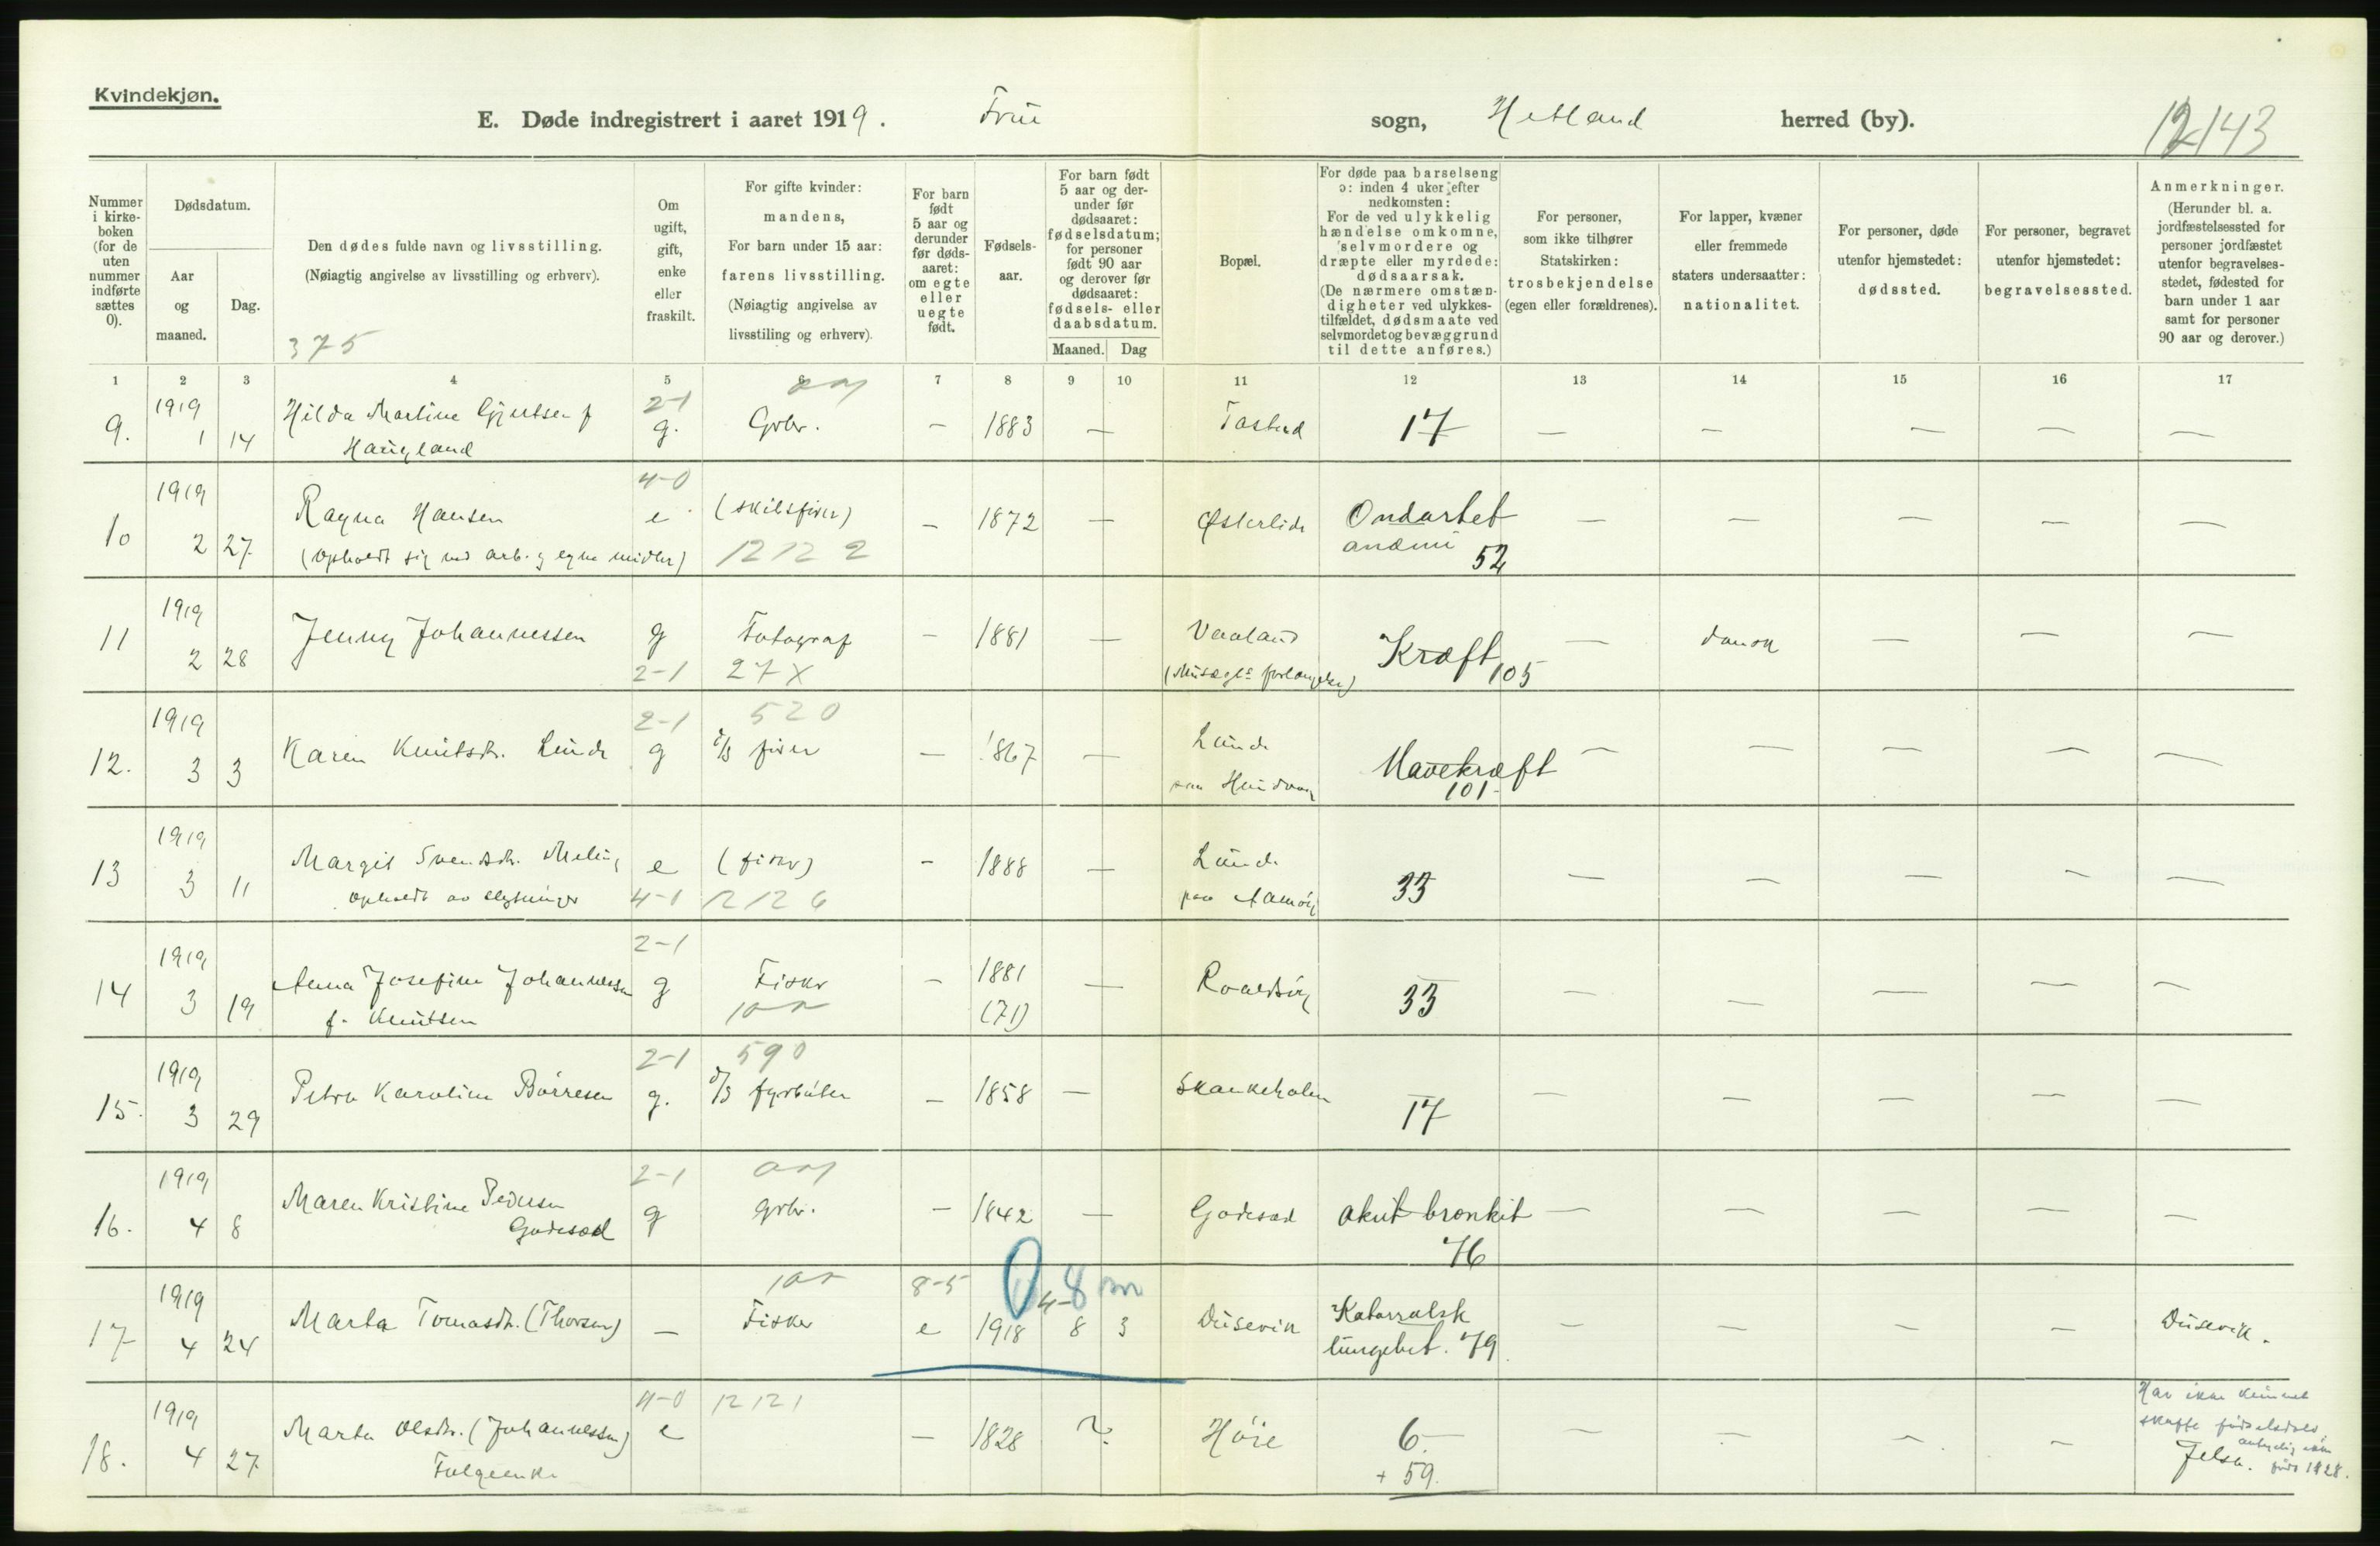 Kvindekjøn.
E. Døde indregistrert i aaret 1919. Frue sogn, Hetland herred (by).
12143
Nummer i kirke-boken (for de uten nummer indførte sættes 0).
Dødsdatum.
Aar og maaned.
Dag.
Den dødes fulde navn og livsstilling.
(Nøiagtig angivelse av livsstilling og erhverv).
375
Om ugift, gift, enke eller fraskilt.
For gifte kvinder: mandens,
For barn under 15 aar: farens livsstilling.
(Nøiagtig angivelse av livsstiling og erhverv).
For barn født 5 aar og derunder før døds-aaret: om egte eller uegte født.
Fødsels-aar.
For barn født 5 aar og der-under før dødsaaret: fødselsdatum; for personer født 90 aar og derover før dødsaaret: fødsels- eller daabsdatum.
Maaned. Dag
Bopæl.
For døde paa barselseng ɔ: inden 4 uker efter nedkomsten:
For de ved ulykkelig hændelse omkomne, selvmordere og dræpte eller myrdede: dødsaarsak.
(De nærmere omstæn-digheter ved ulykkes-tilfældet, dødsmaate ved selvmordet og bevæggrund til dette anføres.)
For personer, som ikke tilhører Statskirken: trosbekjendelse (egen eller forældrenes).
For lapper, kvæner eller fremmede staters undersaatter: nationalitet.
For personer, døde utenfor hjemstedet: dødssted.
For personer, begravet utenfor hjemstedet: begravelsessted.
Anmerkninger.
(Herunder bl. a. jordfæstelsessted for personer jordfæstet utenfor begravelses-stedet, fødested for barn under 1 aar samt for personer 90 aar og derover.)
1 2 3 4 5 6 7 8 9 10 11 12 13 14 15 16 17
9. 1919 1 14 Hilda Martine Gjertsen f Haugland 2-1 g. Grbr. — 1883 — Tasted 17 — — — — —
10 1919 2 27 Ragna Hansen 4-0 e (skibsfører) — 1872 — Østerlide Ondartet anæmi 52 — — — — —
(opholdt sig ved arb. og egne midler) 12 12 2
11 1919 2 28 Jenny Johannessen g 2-1 Fotograf 27 X — 1881 — Vaaland Kræft 105 — dansk — — —
12. 1919 3 3 Karen Knutsdtr. Lunde 2-1 g 520 d/s fører — 1867 — Lunde paa Hundvaag Mavekræft 101 — — — — —
13 1919 3 11 Margit Svendsdtr. Meling e (fisker) — 1888 — Lunde paa Aamøy 33 — — — — —
opholdt av slegtninger 4-1 12 12 6
14 1919 3 19 Anna Josefine Johannessen f. Knutsen 2-1 g Fisker — 1881 (71) — Roaldsøy 33 — — — — —
15. 1919 3 29 Petra Karoline Børresen 2-1 g. 590 d/s fyrbøter — 1858 — Skankeholm 17 — — — — —
16. 1919 4 8 Maren Kristine Pedersen Godesæd 2-1 g grbr. — 1842 — Godesæd akut bronkit 76 — — — — —
17 1919 4 24 Marta Tomasdtr. (Thorsen) — Fisker 8-5 e 0 4-8 m 1918 8 3 Dusevik Katarralsk lungebet. 79 — — — — Dusevik.
18. 1919 4 27 Marta Olsdtr. (Johannessen) Folgeenke 4-0 e 12 12 1 — 1828 ? Høie 6 + 59. — — — — Har ikke kunnet skaffe fødselsdato, født 1828. Jelsa.